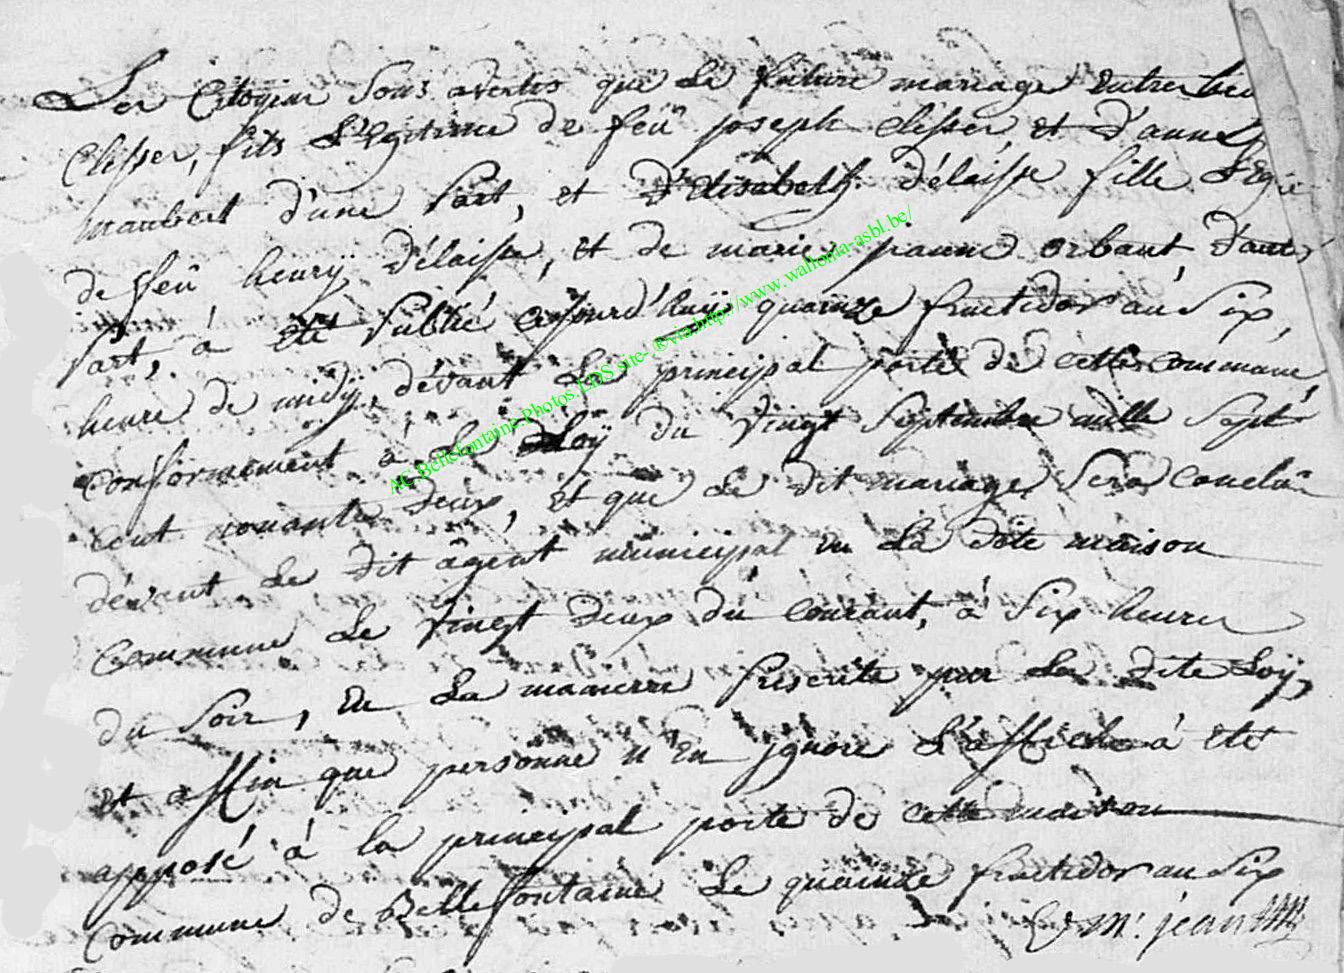 Les Citoyens sont avertis que Le future mariage Entre
Clesser, fils L'egitime de feû joseph clesser, et d'anne
maubert d'une Part, et D'Elisabeth D'élaisse fille Legi
de feû henrÿ D'élaisse, et de marie jeanne orbant, D'autre
Part, à été Publié aujourd'huÿ quainze fructidor an Six,
heure de midÿ, dévant La principal porte de cette commune,
conformement à La Loÿ du vingt Septembre mille Sept
cent nonante Deux, et que Le Dit mariage Sera conclû
dévant Le Dit âgent municipal en La Dite maison
Commune Le vingt Deux du courant, à Six heures
du Soir, en La maniere Prescrite par La Dite Loÿ,
et affin que personne n'En jgnore L'affiche à été
apposé à la principal porte de cette maison
Commune de Bellefontaine Le quainze fructidor an Six
AC Bellefontaine-Photos LDS site-®via.http://www.wallonia-asbl.be/
jean